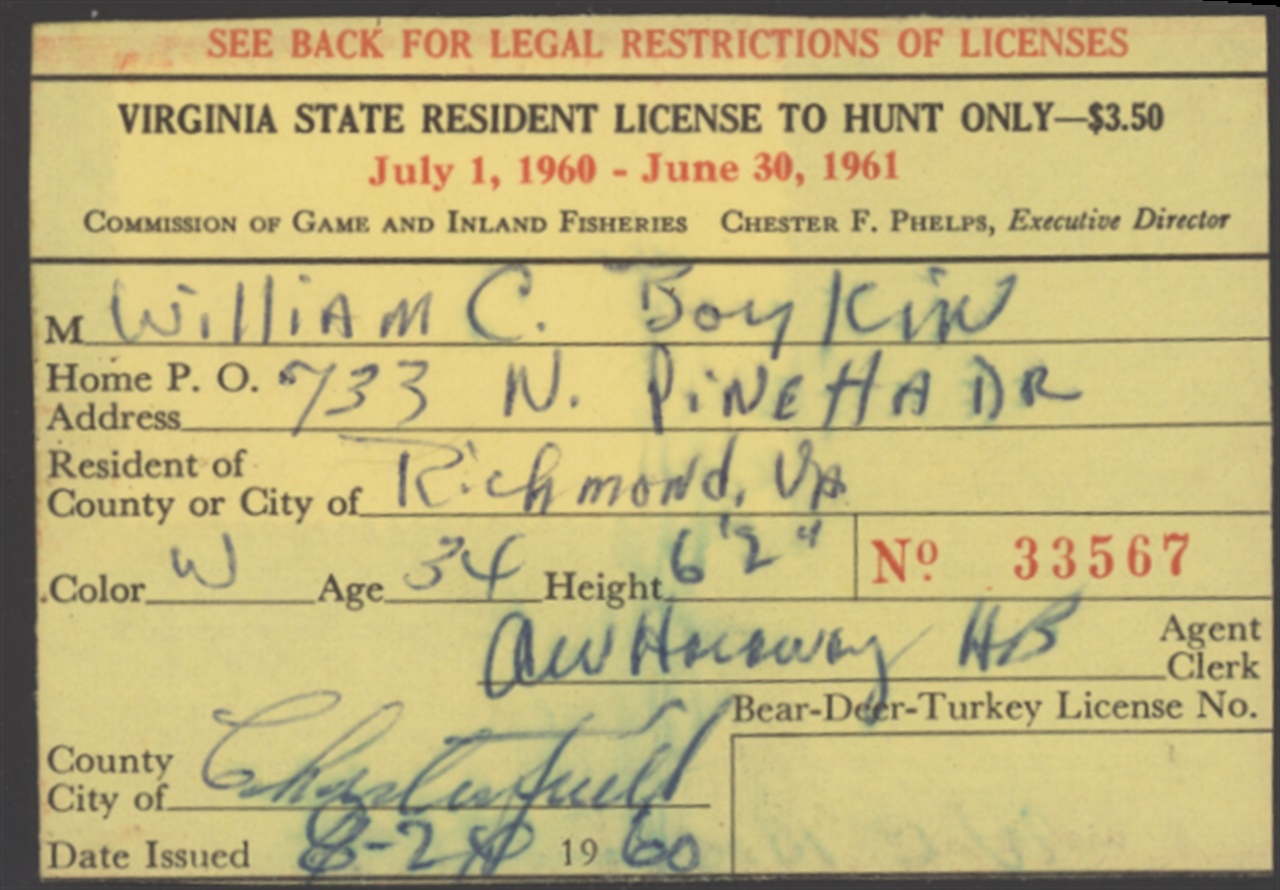 SEE BACK FOR LEGAL RESTRICTIONS OF LICENSES
VIRGINIA STATE RESIDENT LICENSE TO HUNT ONLY—$3.50
July 1, 1960 - June 30, 1961
COMMISSION OF GAME AND INLAND FISHERIES CHESTER F. PHELPS, Executive Director
M William C. Boykin
Home P. O. 733 N. PINEHA DR
Address
Resident of
County or City of Richmond, VA
Color W Age 34 Height 6'2"
No 33567
AW HB Agent
Clerk
Bear-Deer-Turkey License No.
County Chesterfield
City of
Date Issued 1960